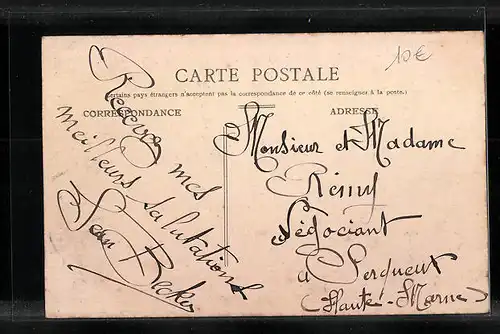 10€
CARTE POSTALE
Certains pays étrangers n'acceptent pas la correspondance de ce côté (se renseignez à la poste.)
CORRESPONDANCE
ADRESSE
Recevez mes
meilleurs salutations
Jean Becker
Monsieur et Madame
Rémy
Négociant
a Serqueux
(Haute-Marne)